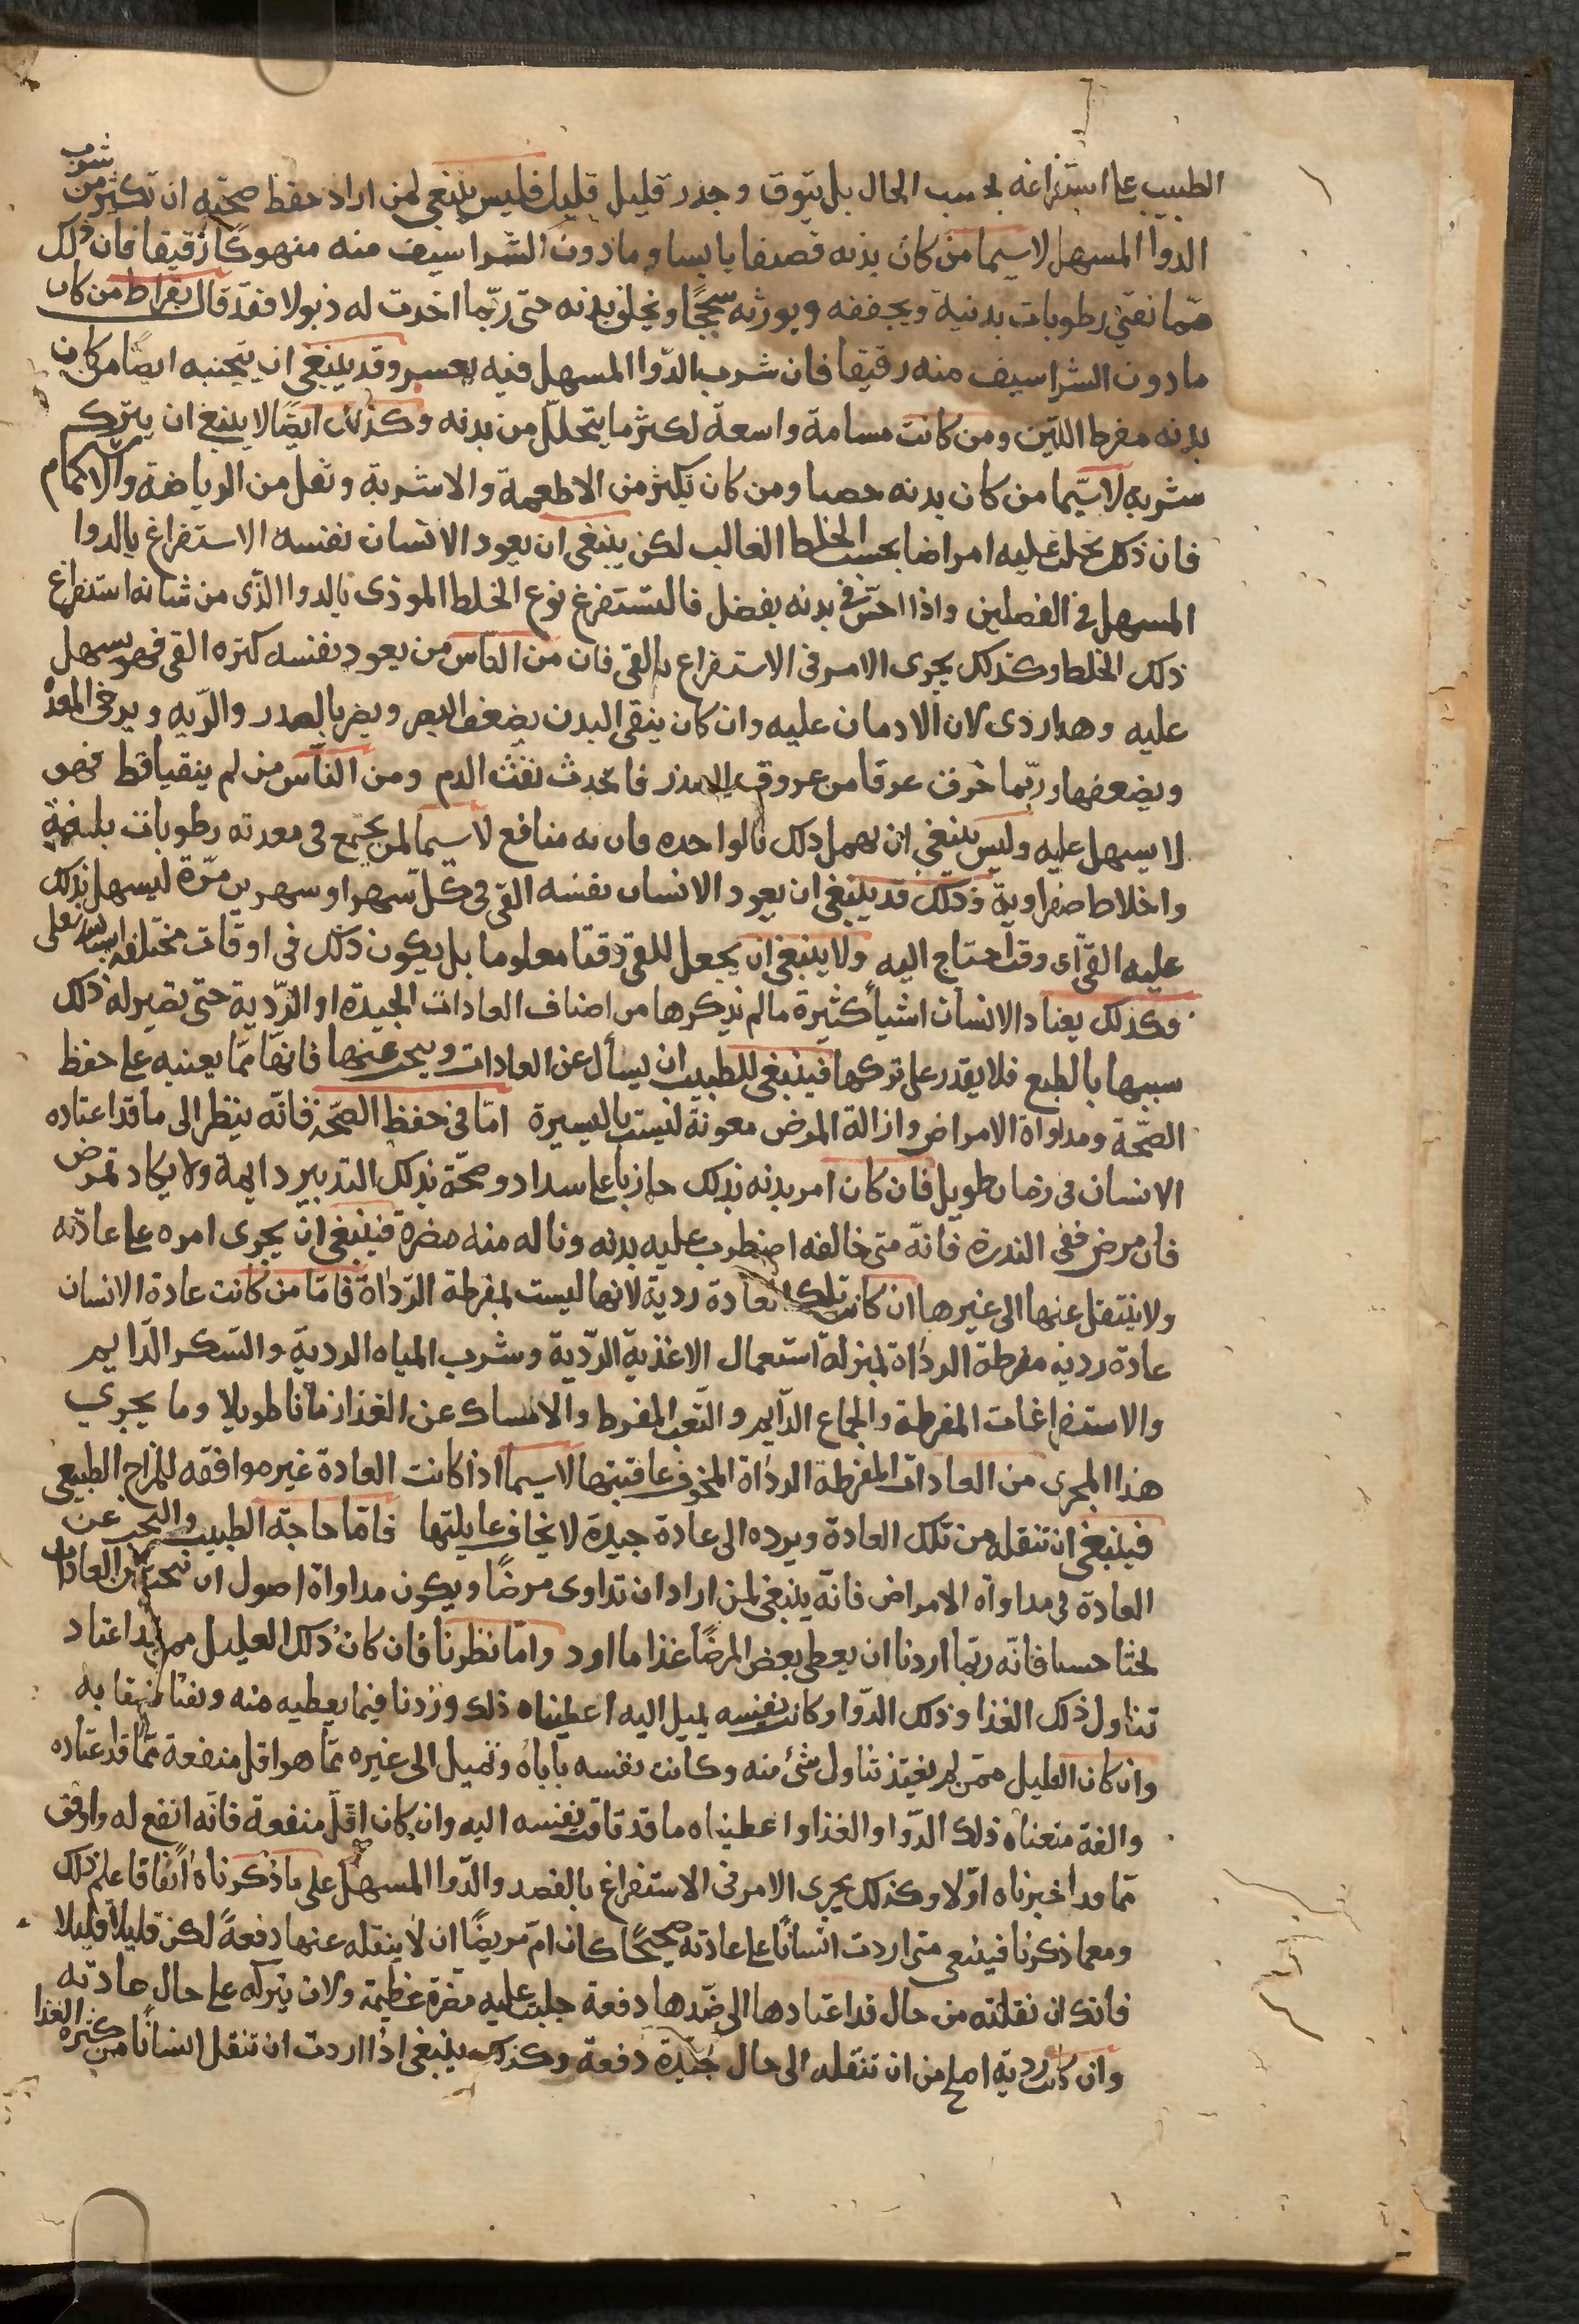 الطبيب على استفراغه بحسب الحال بل يتوق وجدر قليل قليل فليس ينبغي لمن اراد حفظ صحته ان تكثر من شرب
الدوا المسهل لاسيما من كان بدنه قصفا يابسا وما دون الشراسيف منه منهوكا رقيقا فان ذلك
مما نقى رطوبات بدنية ويجففه ويورثه سحجا و بدنه حتى ربما اخدت له ذبولا فقد قال بقراط من كان
ما دون الشراسيف منه رقيقا فان شرب الدوا المسهل فيه بعسر وقد ينبغي ان يتجنبه ايضا من كان
بدنه مفرط اللين ومن كانت مسامة واسعة لكثر ما يتحلل من بدنه وكذلك ايضا لا ينبغ ان يترك
شربه لاسيما من كان بدنه خصبا ومن كان يكثر من الاطعمة والاشربة وتقل من الرياضة والاستحمام
فان ذلك يجلب عليه امراضا بحسب الخلط الغالب لكن ينبغي ان يعود الانسان نفسه الاستفراغ بالدوا
المسهل في الفصلين واذا احس في بدنه بفضل فاليستفرغ نوع الخلط الموذى بالدوا الذى من شانه استفراغ
ذلك الخلط وكذلك يجرى الامر في الاستفراع بالقى فان من الناس من يعود نفسه كثره القى فهو يسهل
عليه وهدا ردى لان الادمان عليه وان كان ينقى البدن يضعف البصر ويضر بالصدر والريه ويرخى المعدة
ويضعفها وربما خرق عرقا من عروق الصدر فاحدث نفث الدم ومن الناس من لم يتقيا قط فهو
لا يسهل عليه وليس ينبغي ان يهمل ذلك بالواحده فان له منافع لاسيما لمن يجتمع في معدته رطوبات بلغمية
واخلاط صفراوية وذلك قد ينبغي ان يعود الانسان نفسه القى فى كل شهر او شهرين مرة ليسهل بذلك
عليه القى اى وقت احتاج اليه ولا ينبغي ان يجعل للقى وقتا معلوما بل يكون ذلك فى اوقات مختلفه
وكذلك يعتاد الانسان اشياء كثيرة ما لم نذكرها من اصناف العادات الجيدة او الردية حتى تصير له ذلك
سببها بالطبع فلا يقدر على تركها فينبغي للطبيب ان يسأل عن العادات ويبحث عنها فانها مما يعينه على حفظ
الصحة ومداواة الامراض وازالة المرض معونة ليست باليسيرة اما في حفظ الصحة فانه ينظر الى ما قد اعتاده
الانسان فى زمان طويل فان كان امر بدنه بذلك جاريا على سداد وصحة بذلك التدبير دايمة ولا يكاد تمرض
فان مرض ففى الندرة فانه متى خالفه اضطرب عليه بدنه وناله منه مضرة فينبغي ان يجرى امره على عادته
ولا ينتقل عنها الى غيرها ان كانت تلك العادة ردية لانها ليست بمفرطة الرداة فاما من كانت عادة الانسان
عادة ردية مفرطة الرداة بمنزلة استعمال الاغذية الردية وشرب المياه الردية والسكر الدايم
والاستفراغات المفرطة والجماع الدايم والتعب المفرط والامساك عن الغذا زمانا طويلا وما يجري
هذا المجرى من العادات المفرطة الرداة المخوف عاقبتها لاسيما اذا كانت العادة غير موافقه للمزاج الطبيعي
فينبغي ان تنقله من تلك العادة ويرده الى عادة جيدة لا يخاف غايلتها فاما حاجة الطبيب والبحث عن
العادة فى مداواة الامراض فانه ينبغي لمن اراد ان تداوى مرضا ويكون مداواة اصول ان يبحث عن العادات
بحثا حسنا فانه ربما اردنا ان يعطى بعض المرضا غذا ما اود واما نظرنا فان كان ذلك العليل ممن قد اعتاد
تناول ذلك الغذا وذلك الدوا وكانت نفسه يميل اليه اعطيناه ذلك وزدنا فيما يعطيه منه به
وان كان العليل ممن لم يعتد تناول شئ منه وكانت نفسه تاباه وتميل الى غيره مما هو اقل منفعة مما قد اعتاده
والفه منعناه ذلك الدوا والغذا واعطيناه ما قد تاقت نفسه اليه وان كان اقل منفعة فانه انفع له واوفق
مما قد اخبرناه اولا وكذلك يجرى الامر فى الاستفراغ بالفصد والدوا المسهل على ما ذكرناه انفا قاعلم ذلك
ومعما ذكرنا فينبغى متى اردت انسانا على عادته صحيحا كان ام مريضا ان لا ينقله عنها دفعة لكن قليلا قليلا
فانك ان نقلته من حال قد اعتادها الى ضدها دفعة جلبت عليه مضرة عظيمة ولان يتركه على حال عادته
وان كانت ردية اصلح من ان تنقله الى حال جيدة دفعة وكذلك ينبغي اذا اردت ان تنقل انسانا من كثرة الغذا